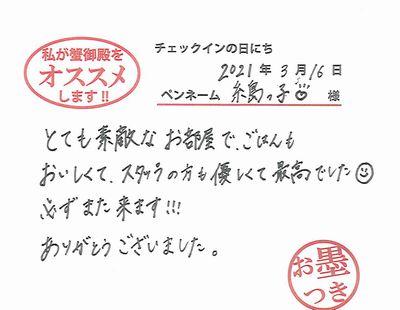 私が蟹御殿を
オススメ
します!!
チェックインの日にち
2021年3月16日
ペンネーム 糸島っ子 様
とても素敵なお部屋で、ごはんも
おいしくて、スタッフの方も優しくて最高でした
必ずまた来ます!!!
ありがとうございました。
お墨
つき